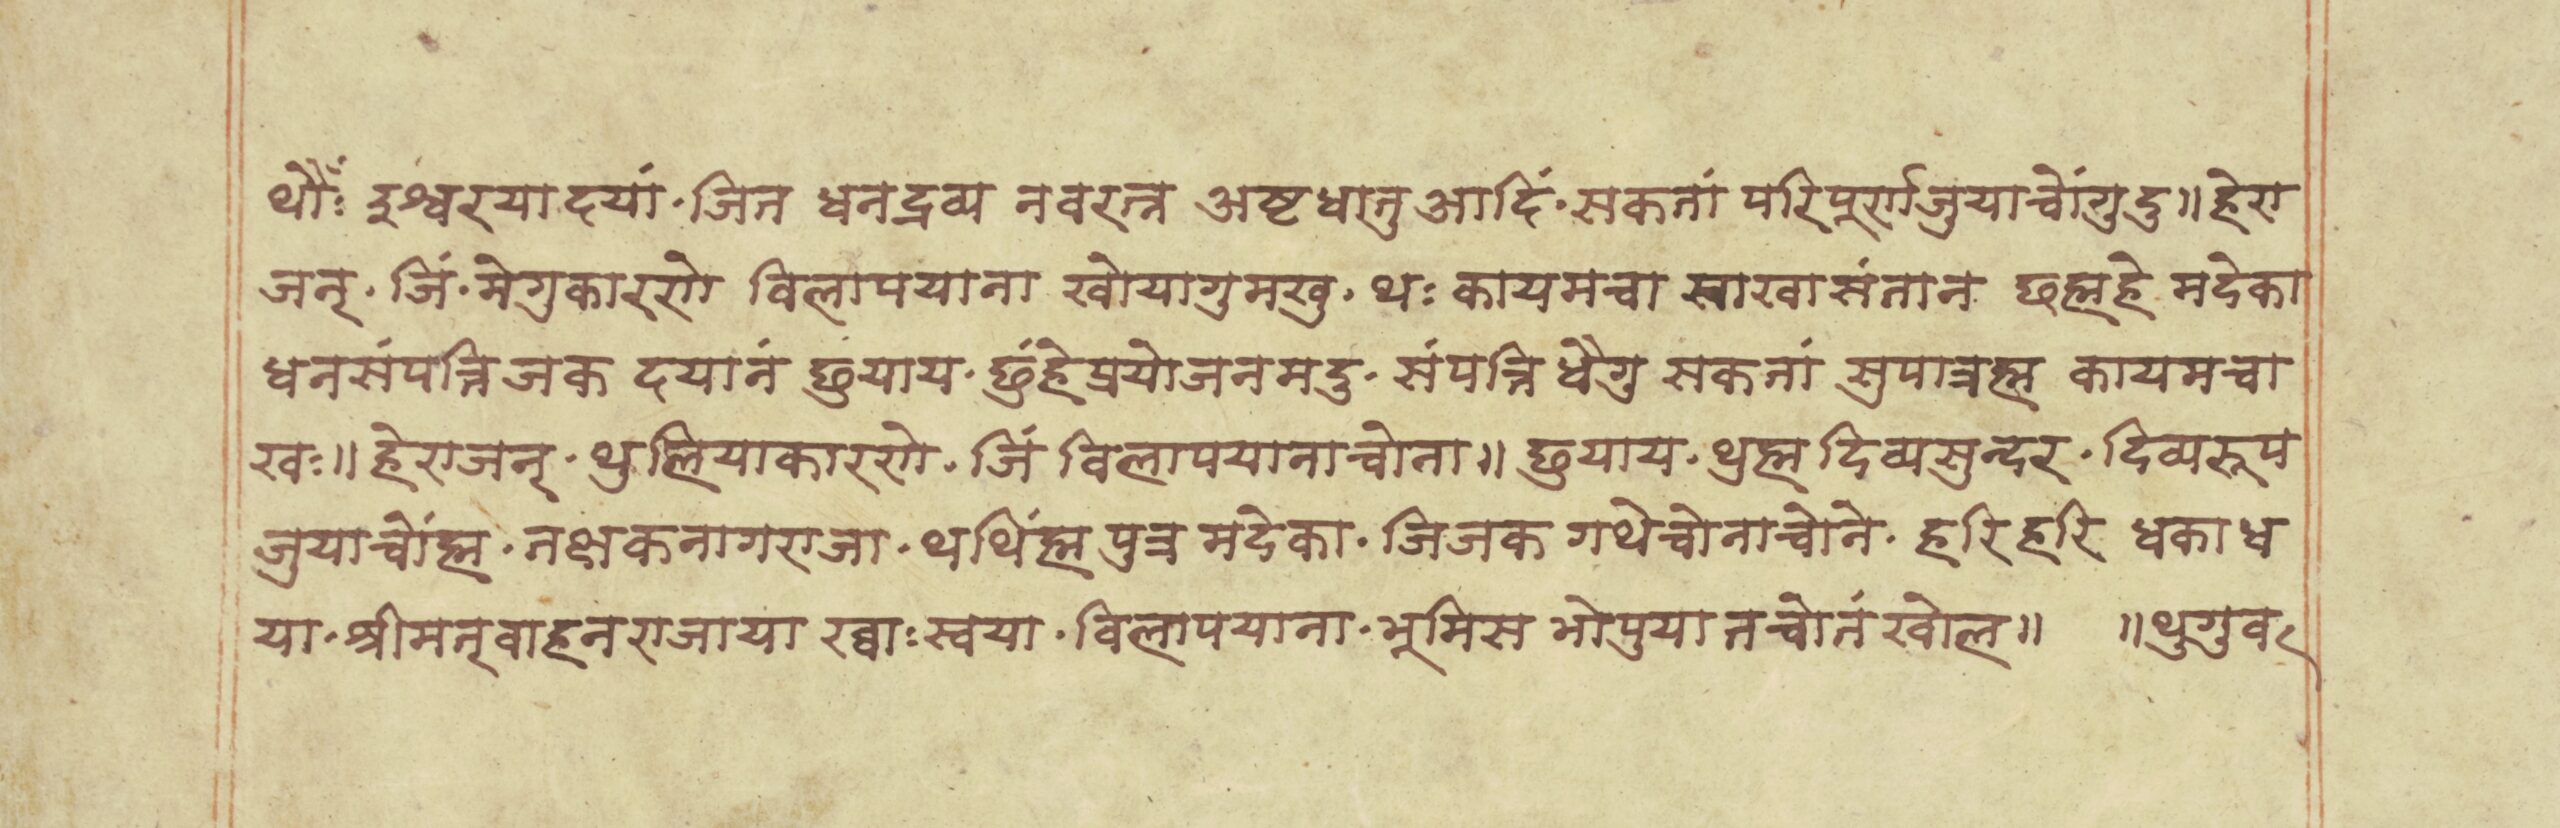 थौंः इश्वरया दयां · जित धनद्रव्य नवरत्न अष्टधातुआदिं · सकतां परिपूर्णजुयाचोंगु दु ॥ हेरा
जन् · जिं · मेगुकारणे विलापयाना खोयागु मखु · थः कायमचा साखा संतान छह्महे मदेका
धनसंपत्ति जक दयानं छुयाय · छुंहे प्रयोजनमदु · संपत्ति धैगु सकतां सुपात्रह्म कायमचा
खः ॥ हेराजन् · थुलियाकारणे · जिं विलापयानाचोना ॥ छुयाय · थुह्म दिव्यसुन्दर · दिव्यरूप
जुयाचोंह्म · तक्षकनागराजा · थथिंह्म पुत्र मदेका · जिजक गथेचोनाचोने · हरि हरि धकाध
या · श्रीमत्वाहनराजाया रव्वाःस्वया · विलापयाना · भूमिस भोपुया तचोतं खोल ॥ ॥ थुगुव